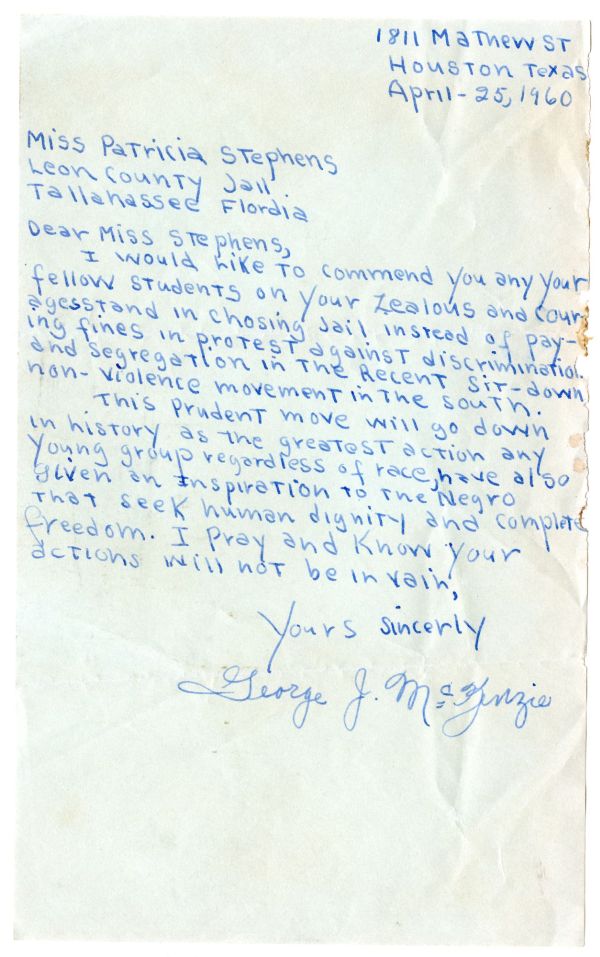 1811 Mathew ST
Houston Texas
April-25, 1960
Miss Patricia Stephens
Leon County Jail.
Tallahassee Flordia
Dear Miss Stephens,
I would like to commend you any your
fellow students on your zealous and cour-
agesstand in chosing Jail instead of pay-
ing fines in protest against discrimination
and segregation in the Recent Sit-down
non-violence movement in the south.
This prudent move will go down
in history as the greatest action any
young group regardless of race, have also
given an inspiration to the Negro
that seek human dignity and complete
freedom. I pray and know your
actions will not be in vain,
Yours sincerly
George J. McKenzie